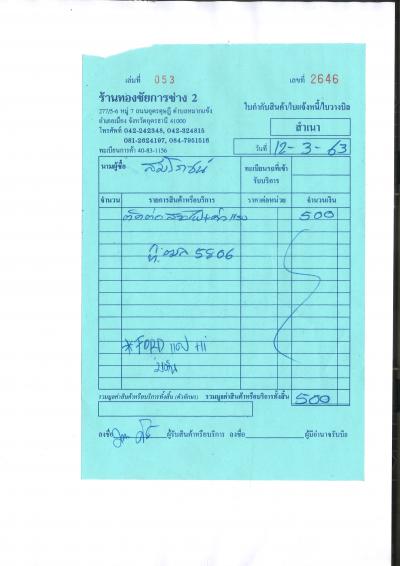 เล่มที่ 053 เลขที่ 2646
ร้านทองชัยการช่าง 2
277/5-6 หมู่ 7 ถนนอุดรดุษฎี ตำบลหมากแข้ง
อำเภอเมือง จังหวัดอุดรธานี 41000
โทรศัพท์ 042-242348, 042-324815
081-2624197, 084-7951516
ทะเบียนการค้า 40-83-1156
ใบกำกับสินค้า/ใบแจ้งหนี้/ใบวางบิล
สำเนา
วันที่ 12-3-63
นามผู้ซื้อ
ทะเบียนรถที่เข้ารับบริการ
จำนวน รายการสินค้าหรือบริการ ราคาต่อหน่วย จำนวนเงิน
500
5806
*FORD
รวมมูลค่าสินค้าหรือบริการทั้งสิ้น (ตัวอักษร) รวมมูลค่าสินค้าหรือบริการทั้งสิ้น 500
ลงชื่อ ผู้รับสินค้าหรือบริการ ลงชื่อ ผู้มีอำนาจรับบิล